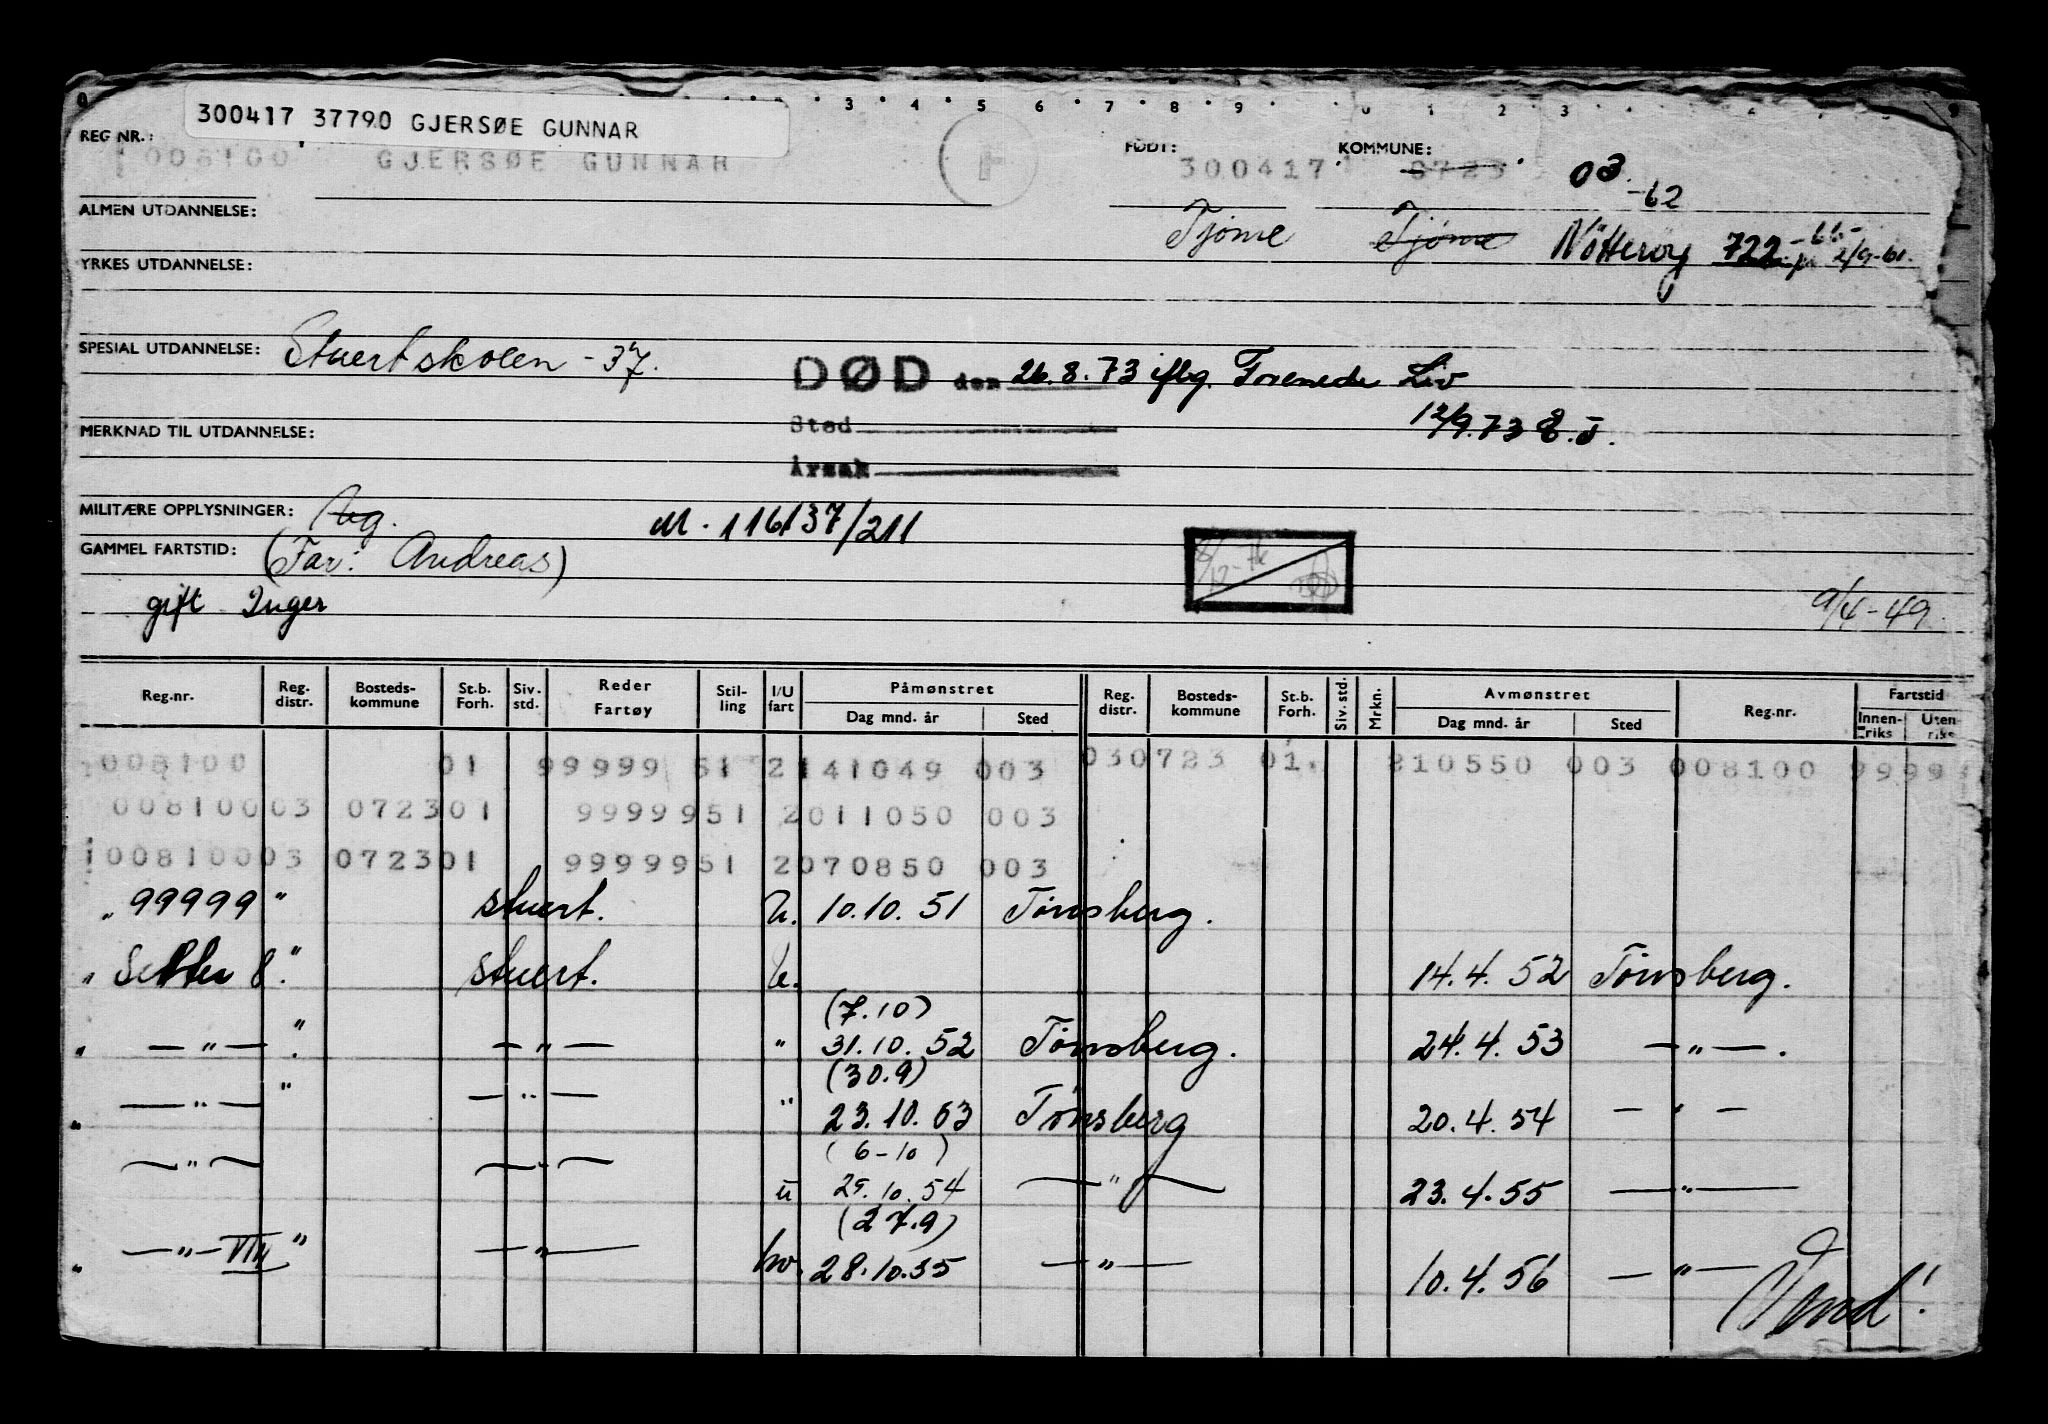 300417 37790 GJERSØE GUNNAR
REG NR.: 008100 GJERSØE GUNNAR FØDT: 300417 KOMMUNE: 0723 03 -62
ALMEN UTDANNELSE: Tjöme Tjöme Nötteröy 722 2/9-61.
YRKES UTDANNELSE:
SPESIAL UTDANNELSE: Stuertskolen -37.
DØD den 26.8.73 iflg. Forenede Liv
Sted 12/9.73
MERKNAD TIL UTDANNELSE:
Årsak
MILITÆRE OPPLYSNINGER: M. 116137/211
GAMMEL FARTSTID: (Far: Andreas)
gift Inger 9/4-49
Reg.nr. Reg. distr. Bosteds- kommune St.b. Forh. Siv. std. Reder Fartøy Stil- ling I/U fart Påmønstret Dag mnd. år Sted Reg. distr. Bosteds- kommune St.b. Forh. Siv. std. Mrkn. Avmønstret Dag mnd. år Sted Reg.nr. Fartstid Innen- riks Uten- riks
008100 01 99999 51 2 141049 003 030723 01. 210550 003 008100 9999
008100 03 0723 01 99999 51 2 011050 003
008100 03 0723 01 99999 51 2 070850 003
" 99999 " stuert. U. 10.10.51 Tønsberg.
" Setter 8." stuert. U. 14.4.52 Tønsberg.
(7.10)
" — " — " — " — " 31.10.52 Tønsberg. 24.4.53 — " — .
(30.9)
" — " — " — " — " 23.10.53 Tønsberg 20.4.54 — " —
(6-10)
— " — — " — u 25.10.54 — " — 23.4.55 — " —
(27.9)
" — " — VIII " — " — hv. 28.10.55 — " — 10.4.56 — " —
Vend!